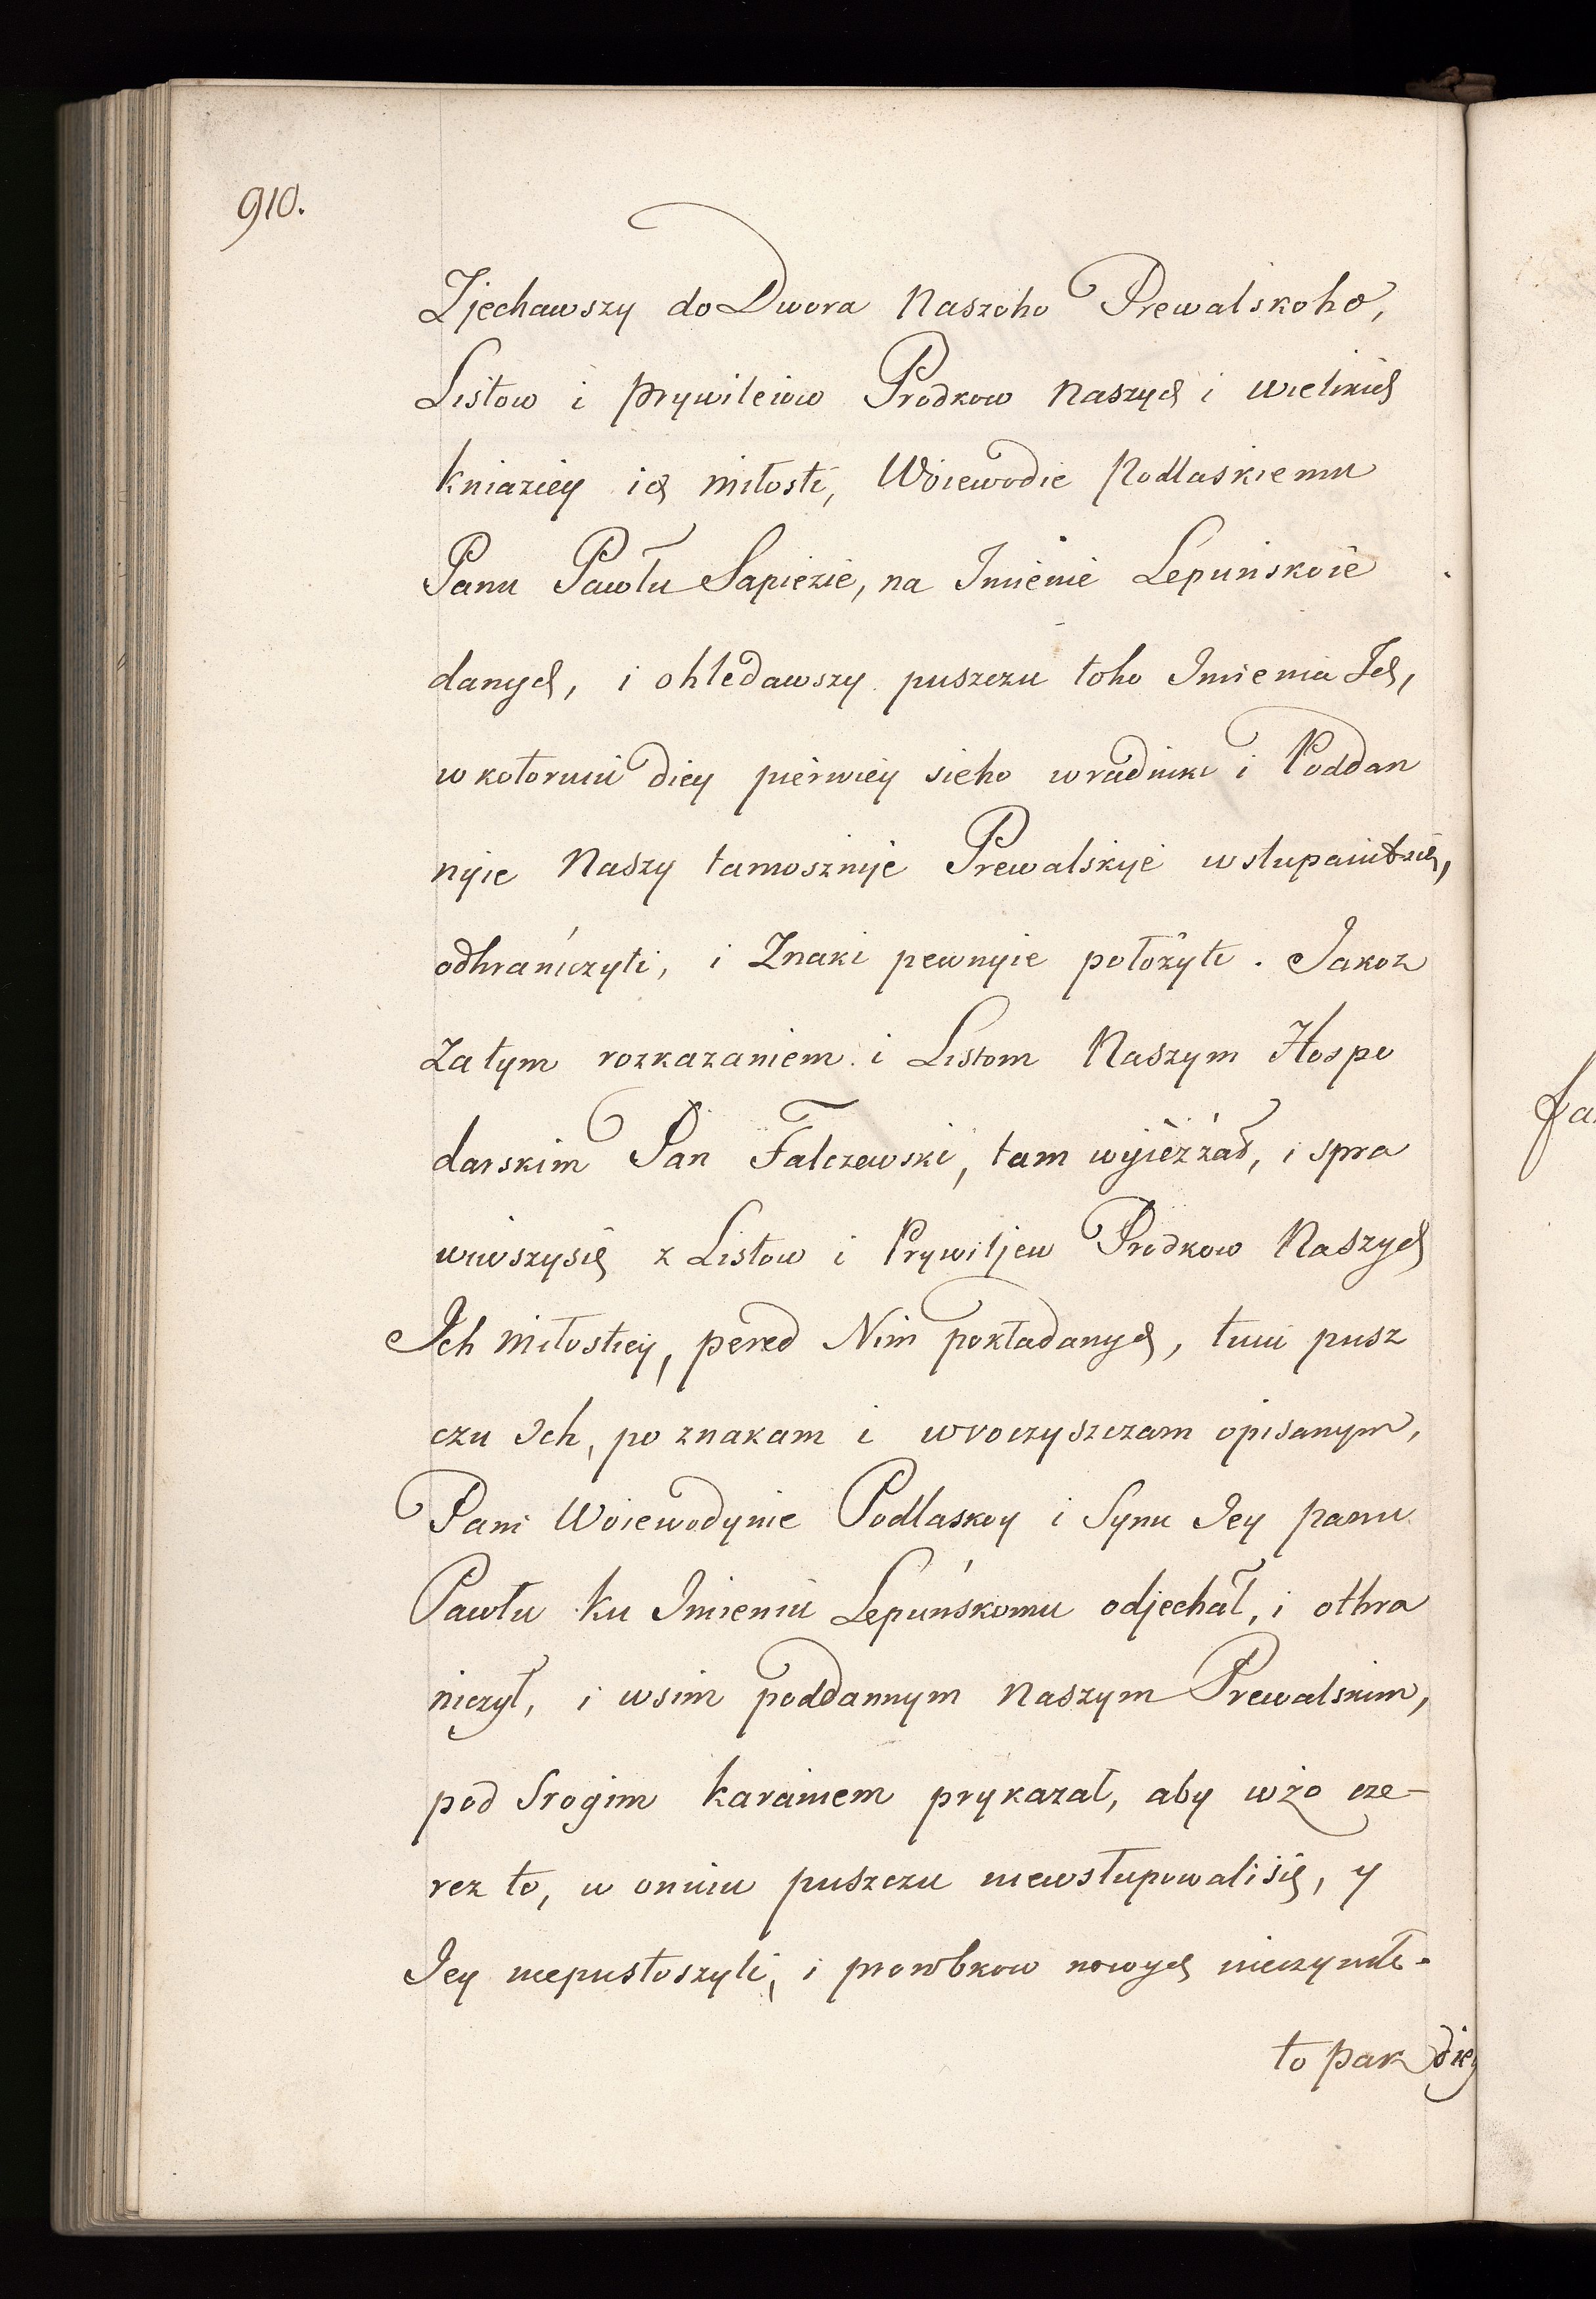 910.
Zjechawszy do Dwora Naszoho Prewalskoho,
Listow i prywileiow Prodkow Naszych i wielikich
kniaziey ich miłosti, Woiewodie Podlaskiemu
Panu Pawłu Sapiezie, na Imienie Lepuńskoie
danych, i ohledawszy puszczu toho Imienia Ich,
w kotoruiu diey pierwiey sieho wradniki i Poddan
nyie Naszy tamosznyie Prewalskyie wstupaiutsię,
odhraniczyti, i Znaki pewnyie położyti. Jakoz
Za tym rozkazaniem i Listom Naszym Hospo
darskim Pan Falczewski, tam wyieżżał, i spra
wiwszysię z Listow i Prywiljew Prodkow Naszych
Ich miłostiey, pered Nim pokładanych, tuiu pusz
czu Ich, po znakam i wroczyszczam opisanym,
Pani Woiewodynie Podlaskoy i Synu Jey panu
Pawłu ku Imieniu Lepuńskomu odjechał, i othra
niczył, i wsim poddannym Naszym Prewalskim,
pod Srogim karaniem prykazał, aby wżo cze-
rez to, w onuiu puszczu niewstupowalisię, y
Jey niepustoszyli, i prorobkow nowych nieczynili.
to pak diey
fa